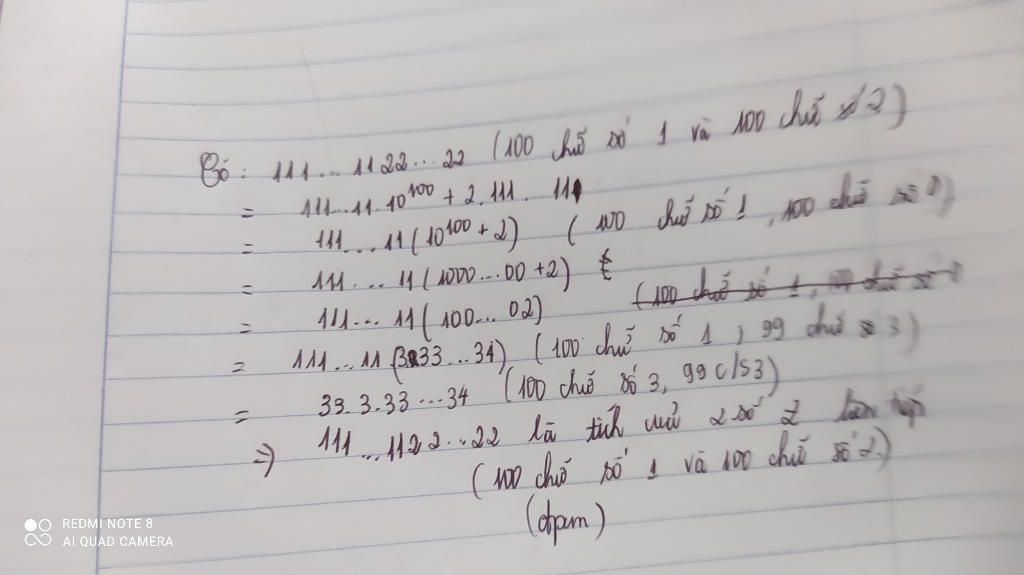 Có: 111...1122...22 (100 chữ số 1 và 100 chữ số 2)
= 111...11.10¹⁰⁰ + 2.111...11
= 111...11(10¹⁰⁰ + 2) (100 chữ số 1, 100 chữ số 0)
= 111...11(1000...00 + 2)
= 111...11(100...02) (100 chữ số 1, chữ số
= 111...11(333...34) (100 chữ số 1, 99 chữ s 3)
= 33.3.33...34 (100 chữ số 3, 99 c/s 3)
=> 111...1122...22 là tích 2 số Z liên tiếp
(100 chữ số 1 và 100 chữ số 2)
(đpcm)
REDMI NOTE 8
AI QUAD CAMERA